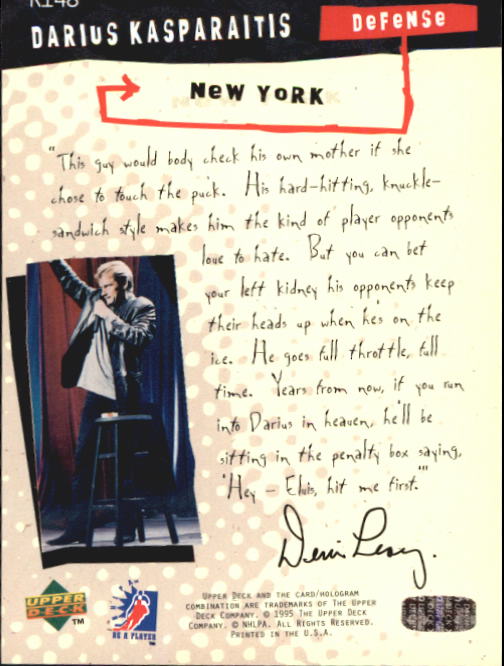 R148
DARIUS KASPARAITIS
DEFENSE
NEW YORK
"This guy would body check his own mother if she
chose to touch the puck. His hard-hitting, knuckle-
sandwich style makes him the kind of player opponents
love to hate. But you can bet
your left kidney his opponents keep
their heads up when he's on the
ice. He goes full throttle, full
time. Years from now, if you run
into Darius in heaven, he'll be
sitting in the penalty box saying,
'Hey - Elvis, hit me first.'"
Denis Leary.
UPPER DECK AND THE CARD/HOLOGRAM
COMBINATION ARE TRADEMARKS OF THE UPPER
DECK COMPANY. © 1995 THE UPPER DECK
COMPANY. © NHLPA. ALL RIGHTS RESERVED.
PRINTED IN THE U.S.A.
UPPER
DECK
TM
BE A PLAYER
TM